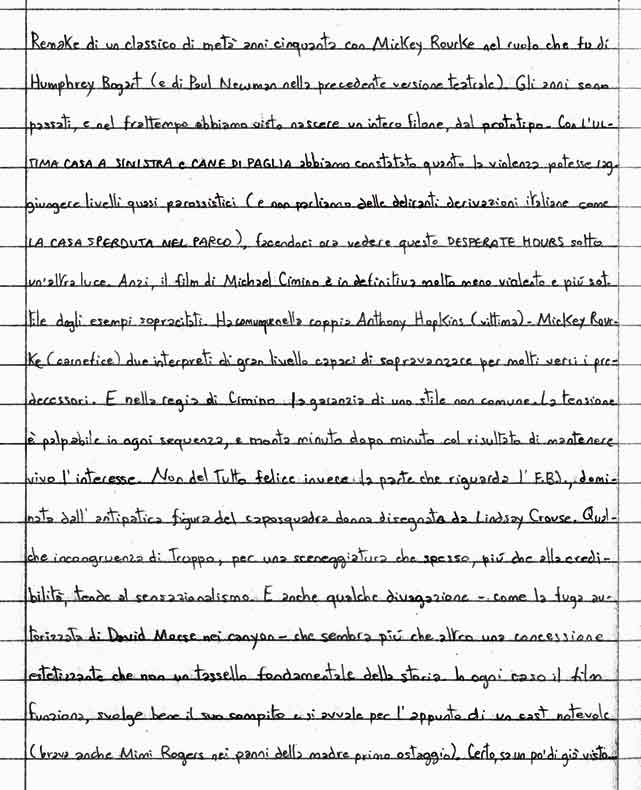 Remake di un classico di metà anni cinquanta con Mickey Rourke nel ruolo che fu di
Humphrey Bogart (e di Paul Newman nella precedente versione teatrale). Gli anni sono
passati, e nel frattempo abbiamo visto nascere un intero filone, dal prototipo. Con L'UL-
TIMA CASA A SINISTRA e CANE DI PAGLIA abbiamo constatato quanto la violenza potesse rag-
giungere livelli quasi parossistici (e non parliamo delle deliranti derivazioni italiane come
LA CASA SPERDUTA NEL PARCO), facendoci ora vedere questo DESPERATE HOURS sotto
un'altra luce. Anzi, il film di Michael Cimino è in definitiva molto meno violento e più sot-
tile degli esempi sopracitati. Ha comunque nella coppia Anthony Hopkins (vittima) - Mickey Rour-
ke (carnefice) due interpreti di gran livello capaci di sopravanzare per molti versi i pre-
decessori. E nella regia di Cimino la garanzia di uno stile non comune. La tensione
è palpabile in ogni sequenza, e monta minuto dopo minuto col risultato di mantenere
vivo l'interesse. Non del tutto felice invece la parte che riguarda l'F.B.I., domi-
nata dall'antipatica figura del caposquadra donna disegnata da Lindsay Crouse. Qual-
che incongruenza di troppo, per una sceneggiatura che spesso, più che alla credi-
bilità, tende al sensazionalismo. E anche qualche divagazione - come la fuga au-
torizzata di David Morse nei canyon - che sembra più che altro una concessione
estetizzante che non un tassello fondamentale della storia. In ogni caso il film
funziona, svolge bene il suo compito e si avvale per l'appunto di un cast notevole
(brava anche Mimi Rogers nei panni della madre primo ostaggio). Certo, sa un po' di già visto